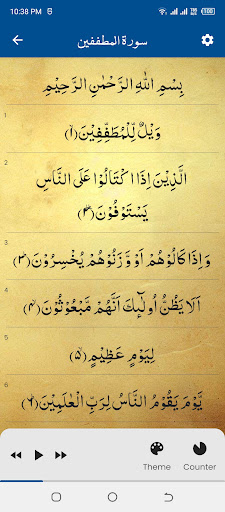 10:38 PM
سورة المطففين
بِسْمِ اللهِ الرَّحْمٰنِ الرَّحِيْمِ
1
وَيْلٌ لِّلْمُطَفِّفِيْنَ ﴿۱﴾
2
الَّذِيْنَ اِذَا اكْتَالُوْا عَلَى النَّاسِ
يَسْتَوْفُوْنَ ﴿۲﴾
3
وَاِذَا كَالُوْهُمْ اَوْ وَّزَنُوْهُمْ يُخْسِرُوْنَ ﴿۳﴾
4
اَلَا يَظُنُّ اُولٰٓئِكَ اَنَّهُمْ مَّبْعُوْثُوْنَ ﴿۴﴾
5
لِيَوْمٍ عَظِيْمٍ ﴿۵﴾
6
يَّوْمَ يَقُوْمُ النَّاسُ لِرَبِّ الْعٰلَمِيْنَ ﴿۶﴾
Theme Counter